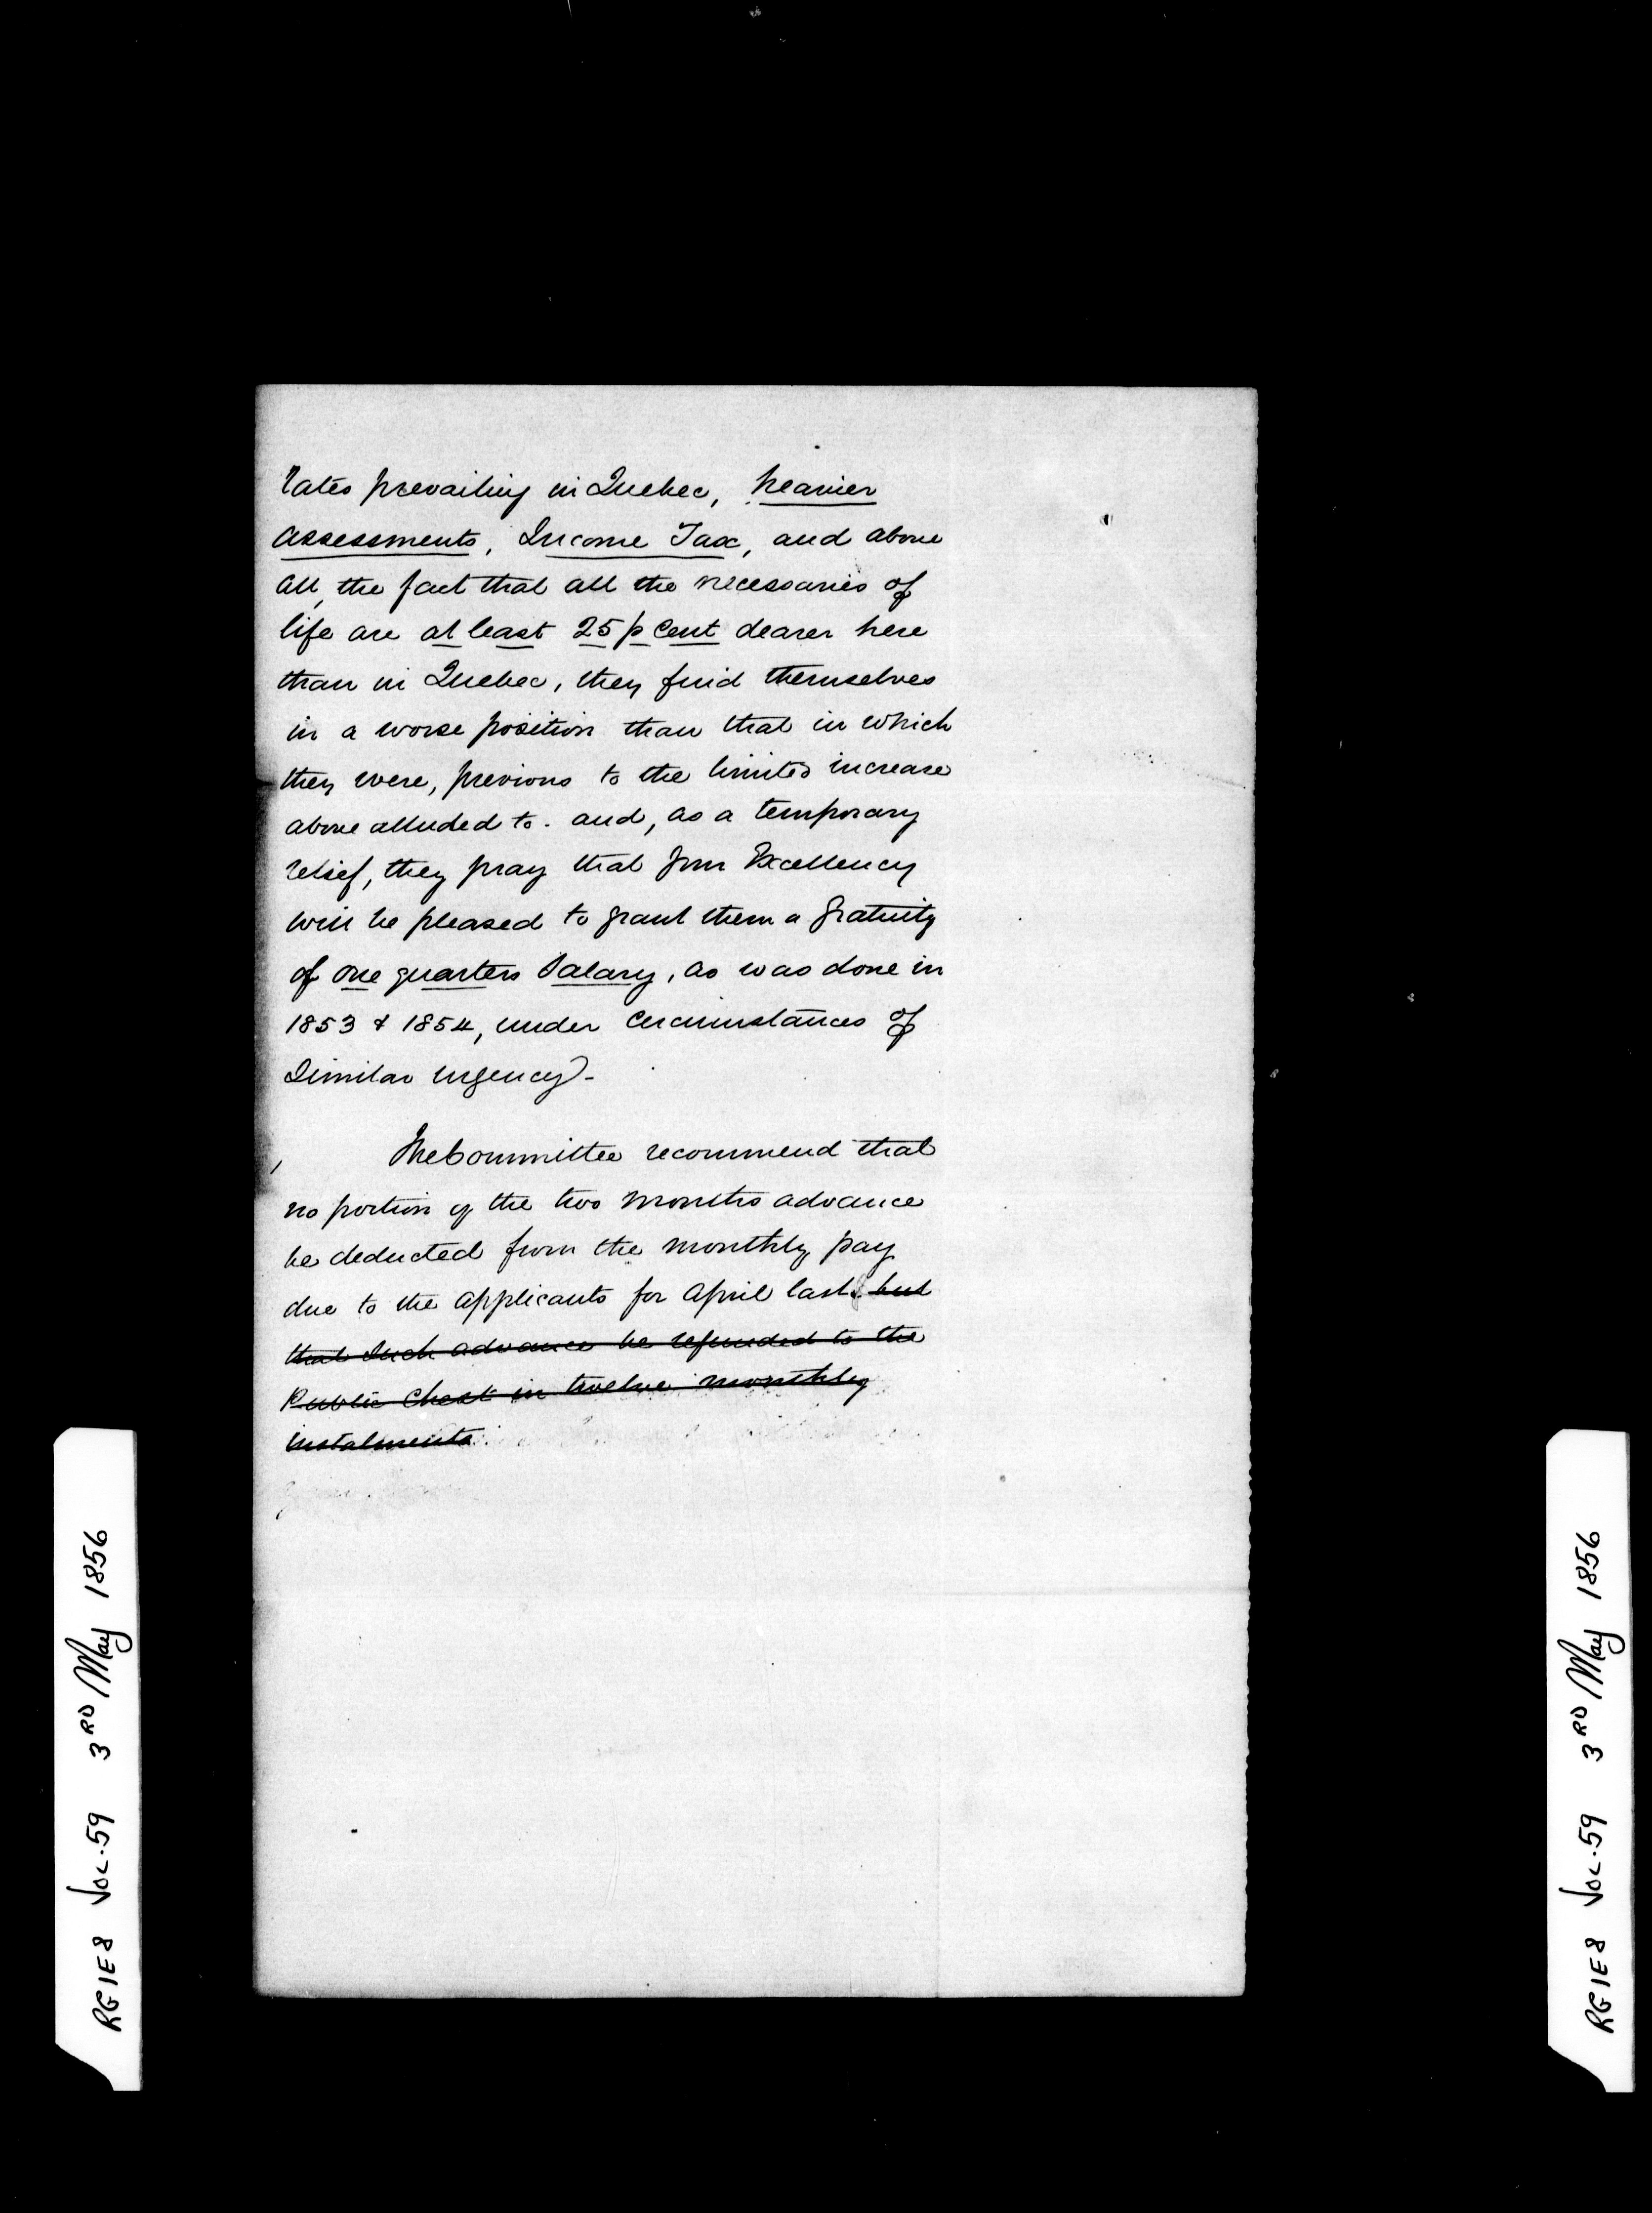 rates prevailing in Quebec, heavier
assessments, Income Tax, and above
all, the fact that all the necessaries of
life are at least 25 p Cent dearer here
than in Quebec, they find themselves
in a worse position than that in which
they were, previous to the limited increase
above alluded to. and, as a temporary
relief, they pray that Your Excellency
will be pleased to grant them a gratuity
of one quarters Salary, as was done in
1853 & 1854, under Circumstances of
Similar urgency -
The Committee recommend that
no portion of the two months advance
be deducted from the monthly pay
due to the applicants for April last. but
that such advance be refunded to the
Public Chest in twelve monthly
instalments.
RG1E8 VOL.59 3RD May 1856
RG1E8 VOL.59 3RD May 1856